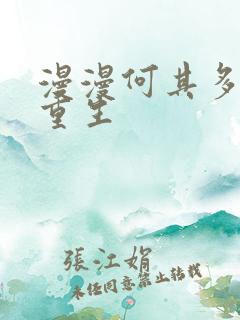 漫漫何其多
重生
張江娟
未經同意禁止轉載